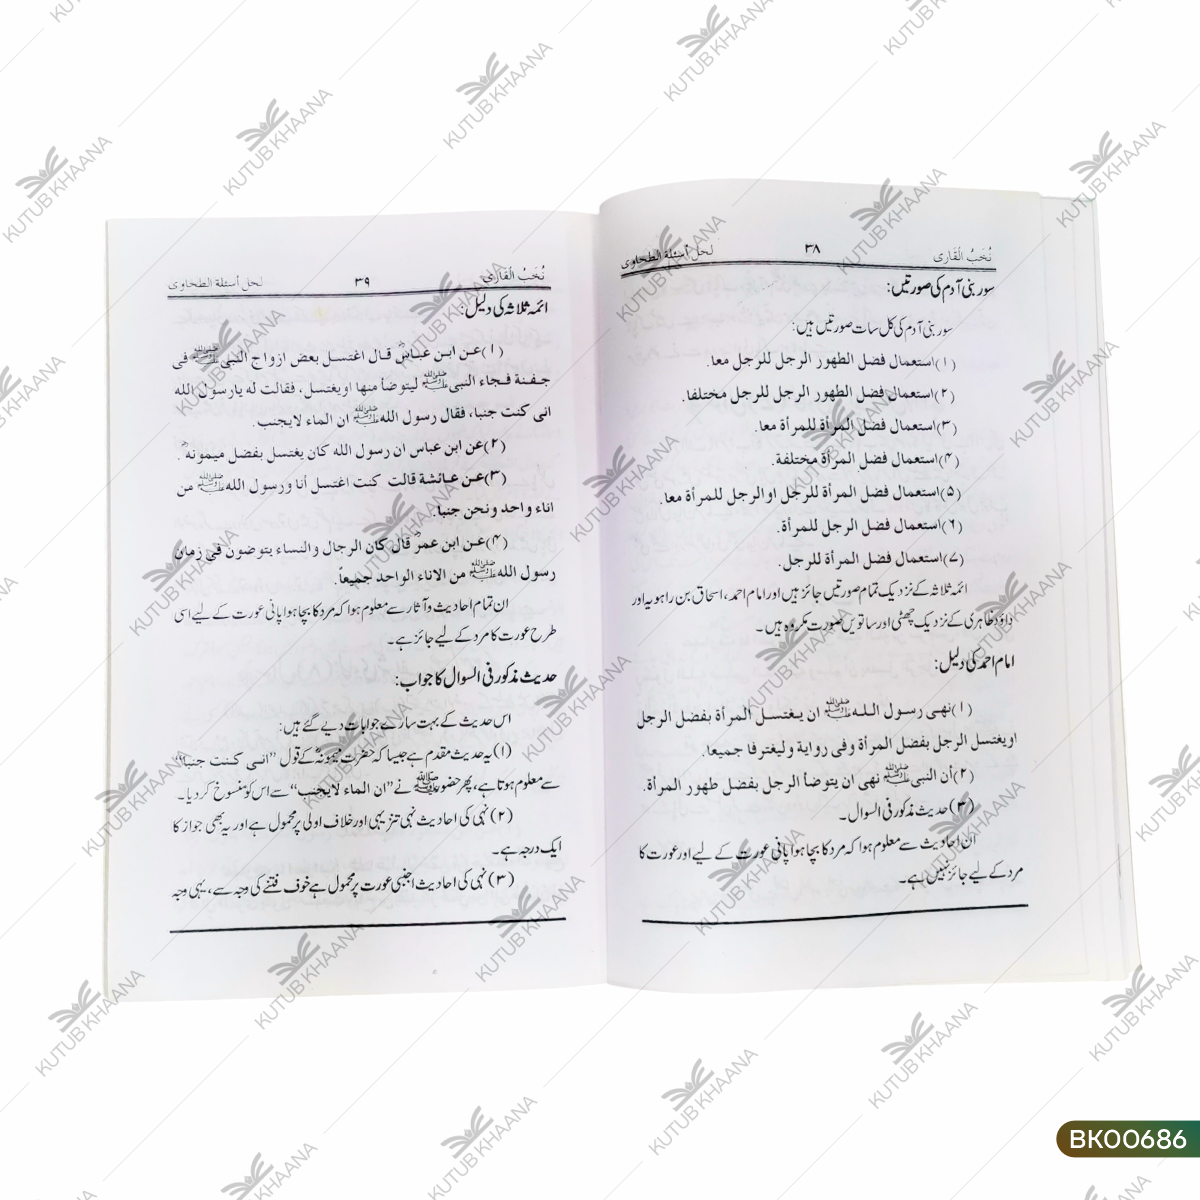 نُخَبُ الْقَارِی ۳۸ لحل أسئلة الطحاوی
سور بنی آدم کی صورتیں:
سور بنی آدم کی کل سات صورتیں ہیں:
(۱) استعمال فضل الطهور الرجل للرجل معا.
(۲) استعمال فضل الطهور الرجل للرجل مختلفا.
(۳) استعمال فضل المرأة للمرأة معا.
(۴) استعمال فضل المرأة مختلفة.
(۵) استعمال فضل المرأة للرجل او الرجل للمرأة معا.
(۶) استعمال فضل الرجل للمرأة.
(۷) استعمال فضل المرأة للرجل.
ائمہ ثلاثہ کے نزدیک تمام صورتیں جائز ہیں اور امام احمد، اسحاق بن راہویہ اور
داؤد ظاہری کے نزدیک چھٹی اور ساتویں صورت مکروہ ہیں۔
امام احمد کی دلیل:
(۱) نهی رسول الله ﷺ ان یغتسل المرأة بفضل الرجل
او یغتسل الرجل بفضل المرأة وفی روایة ولیغترفا جمیعا.
(۲) أن النبی ﷺ نهی ان یتوضأ الرجل بفضل طهور المرأة.
(۳) حدیث مذکور فی السوال۔
ان احادیث سے معلوم ہوا کہ مرد کا بچا ہوا پانی عورت کے لیے اور عورت کا
مرد کے لیے جائز نہیں ہے۔
نُخَبُ الْقَارِی ۳۹ لحل أسئلة الطحاوی
ائمہ ثلاثہ کی دلیل:
(۱) عن ابن عباسؓ قال اغتسل بعض ازواج النبی ﷺ فی
جفنة فجاء النبی ﷺ لیتوضأ منها او یغتسل، فقالت له یا رسول الله
انی کنت جنبا، فقال رسول الله ﷺ ان الماء لایجنب.
(۲) عن ابن عباس ان رسول الله کان یغتسل بفضل میمونهؓ.
(۳) عن عائشة قالت کنت اغتسل أنا ورسول الله ﷺ من
اناء واحد ونحن جنبا.
(۴) عن ابن عمرؓ قال کان الرجال والنساء یتوضون فی زمان
رسول الله ﷺ من الاناء الواحد جمیعاً.
ان تمام احادیث و آثار سے معلوم ہوا کہ مرد کا بچا ہوا پانی عورت کے لیے اسی
طرح عورت کا مرد کے لیے جائز ہے۔
حدیث مذکور فی السوال کا جواب:
اس حدیث کے بہت سارے جوابات دیے گئے ہیں:
(۱) یہ حدیث مقدم ہے جیسا کہ حضرت میمونہؓ کے قول "انی کنت جنبا"
سے معلوم ہوتا ہے، پھر حضور ﷺ نے "ان الماء لایجنب" سے اس کو منسوخ کر دیا۔
(۲) نہی کی احادیث نہی تنزیہی اور خلاف اولی پر محمول ہے اور یہ بھی جواز کا
ایک درجہ ہے۔
(۳) نہی کی احادیث اجنبی عورت پر محمول ہے خوف فتنے کی وجہ سے، یہی وجہ
KUTUB KHAANA
BK00686